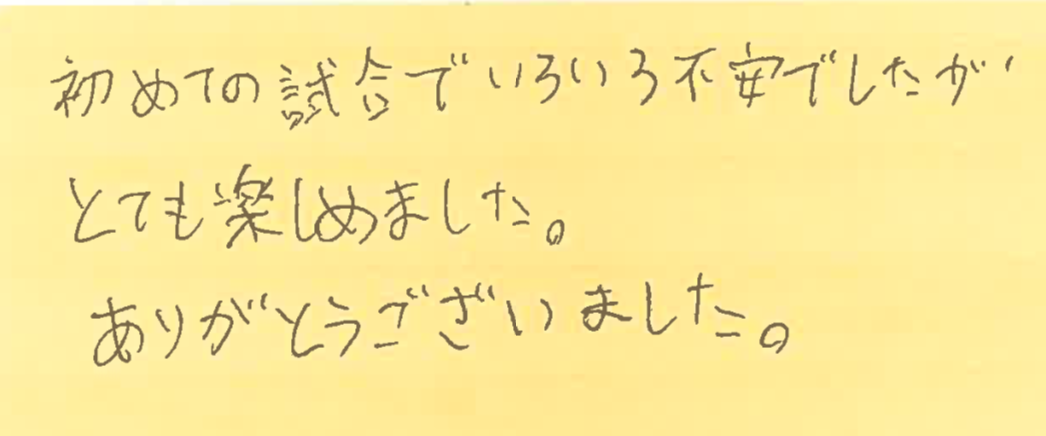 初めての試合でいろいろ不安でしたが
とても楽しめました。
ありがとうございました。